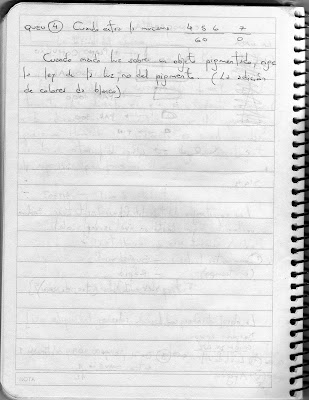 QUEU (4) Cuando entre la máxima 4 5 6 7
60 0
Cuando mando luz sobre un objeto pigmentado, rige
la ley de la luz, no del pigmento. (La adición
de colores da blanco)
NOTA